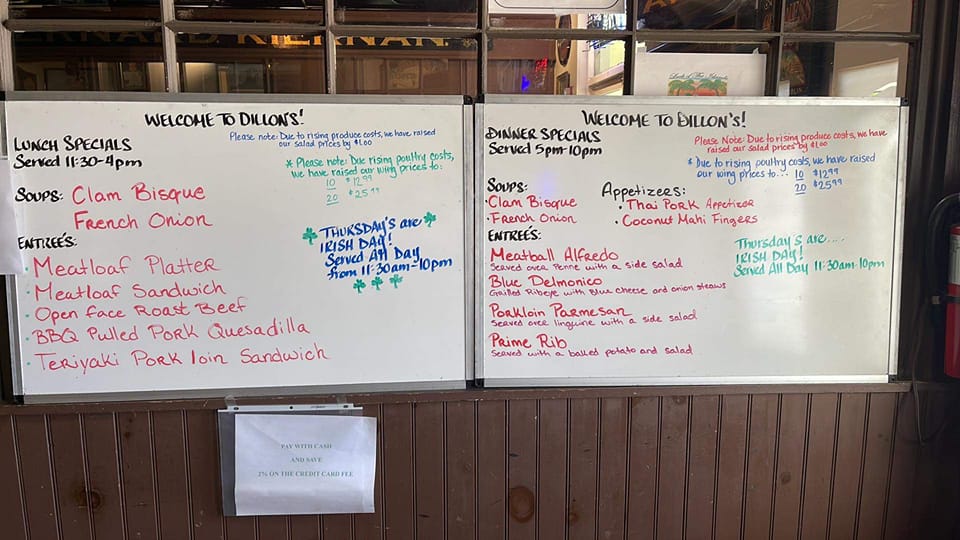 BERNARD KIERNAN
Lord of The Islands
WELCOME TO DILLON'S!
LUNCH SPECIALS
Served 11:30-4pm
Please note: Due to rising produce costs, we have raised
our salad prices by $1.00
* Please note: Due to rising poultry costs,
we have raised our wing prices to:
10 $12.99
20 $25.99
SOUPS: Clam Bisque
French Onion
THURSDAY'S are
IRISH DAY!
Served All Day
from 11:30am-10pm
ENTREÉS:
· Meatloaf Platter
· Meatloaf Sandwich
· Open Face Roast Beef
· BBQ Pulled Pork Quesadilla
· Teriyaki Pork loin Sandwich
WELCOME TO DILLON'S!
DINNER SPECIALS
Served 5pm-10pm
Please Note: Due to rising produce costs, we have
raised our salad prices by $1.00
* Due to rising poultry costs, we have raised
our wing prices to:
10 $12.99
20 $25.99
SOUPS:
· Clam Bisque
· French Onion
Appetizers:
· Thai Pork Appetizer
· Coconut Mahi Fingers
ENTREÉS:
Meatball Alfredo
Served over Penne with a side salad
Blue Delmonico
Grilled Ribeye with Blue cheese and onion straws
Porkloin Parmesan
Served over linguine with a side salad
Prime Rib
Served with a baked potato and salad
Thursday's are....
IRISH DAY!
Served All Day 11:30am-10pm
PAY WITH CASH
AND SAVE
2% ON THE CREDIT CARD FEE